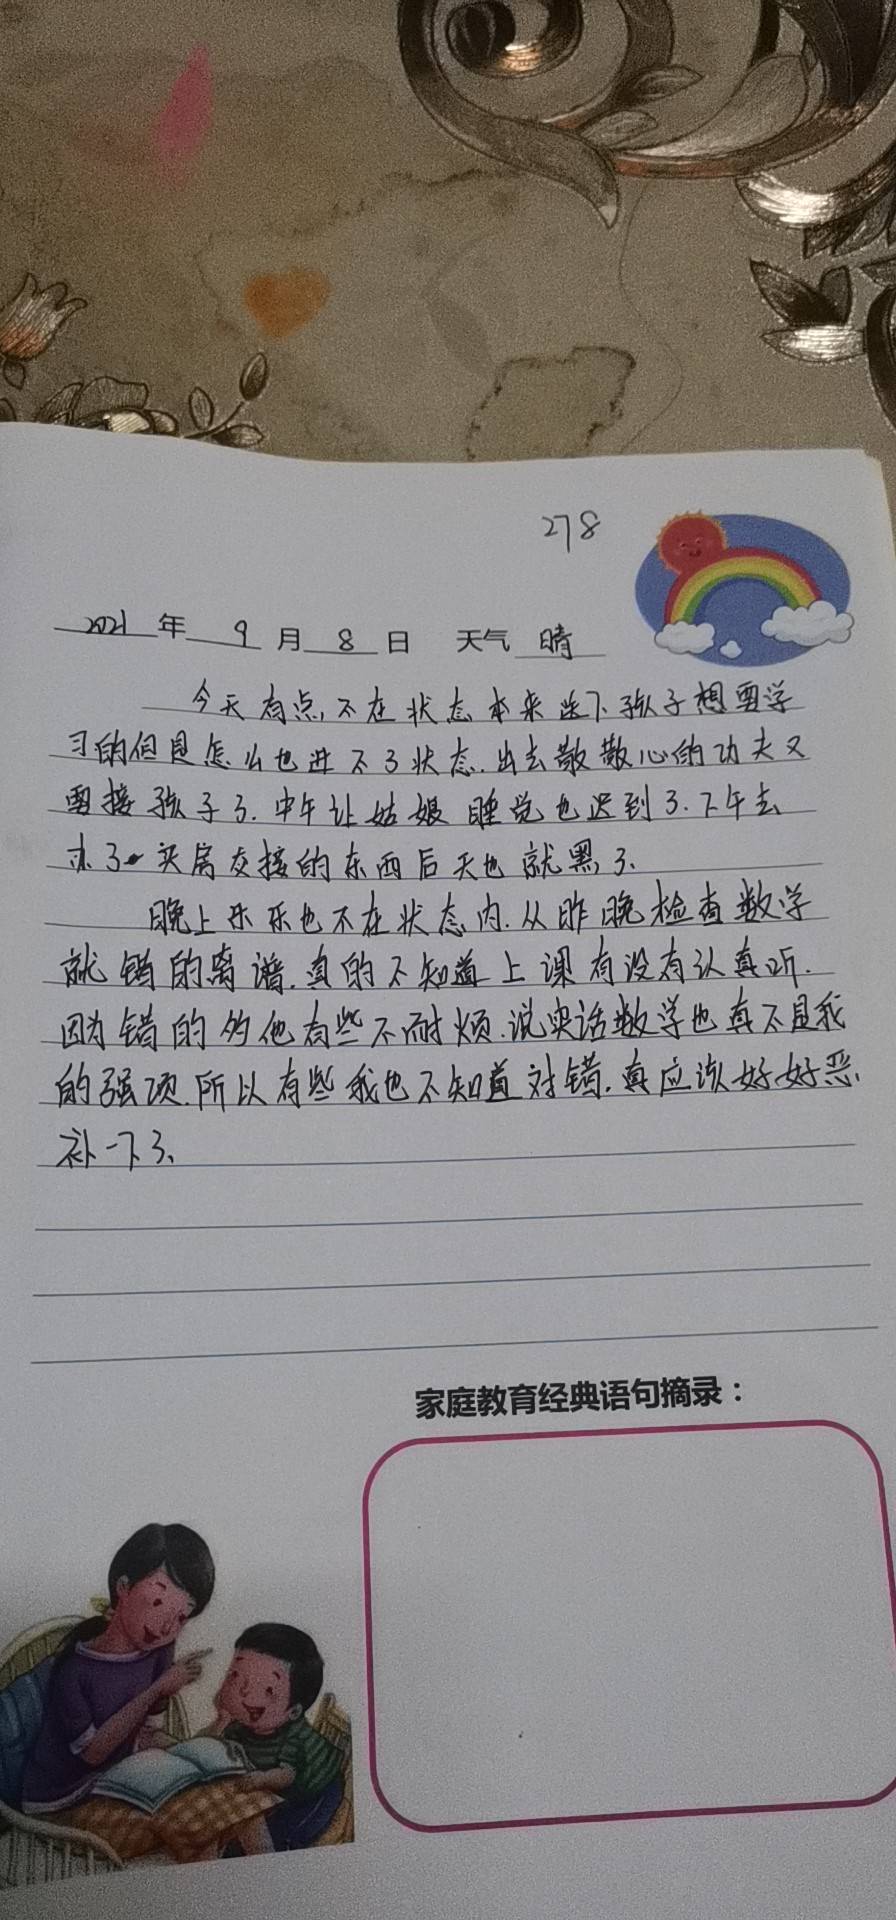 278
2021年 9月 8日 天气 晴
今天有点不在状态本来送下孩子想要学
习的但是怎么也进不了状态.出去散散心的功夫又
要接孩子了.中午让姑娘睡觉也迟到了.下午去
办了买房交接的东西后天也就黑了.
晚上乐乐也不在状态内.从昨晚检查数学
就错的离谱.真的不知道上课有没有认真听.
因为错的多他有些不耐烦.说实话数学也真不是我
的强项.所以有些我也不知道对错.真应该好好恶
补一下了.
家庭教育经典语句摘录：